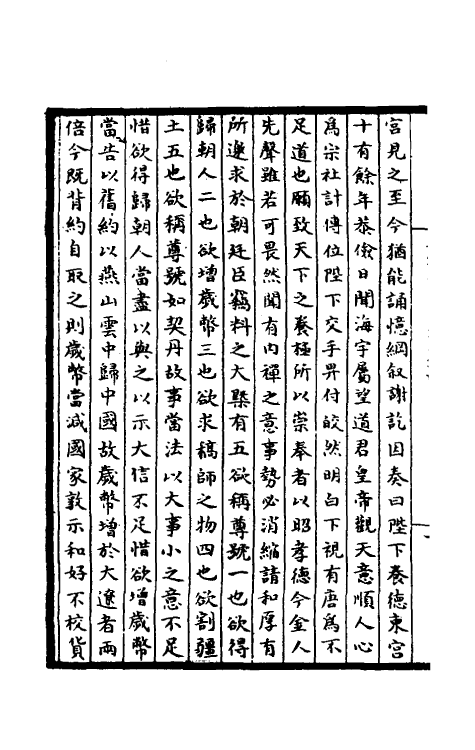 宮見之至今猶能誦憶綱叙謝訖因奏曰陛下養德東宮
十有餘年恭儉日聞海宇屬望道君皇帝觀天意順人心
為宗社計傳位陛下交手畀付皎然明白下視有唐為不
足道也願致天下之養極所以崇奉者以昭孝德今金人
先聲雖若可畏然聞有内禪之意事勢必消縮請和厚有
所邀求於朝廷臣竊料之大槩有五欲稱尊號一也欲得
歸朝人二也欲增歲幣三也欲求犒師之物四也欲割疆
土五也欲稱尊號如契丹故事當法以大事小之意不足
惜欲得歸朝人當盡以與之以示大信不足惜欲增歲幣
當告以舊約以燕山雲中歸中國故歲幣增於大遼者兩
倍今既背約自取之則歲幣當減國家敦示和好不校貨